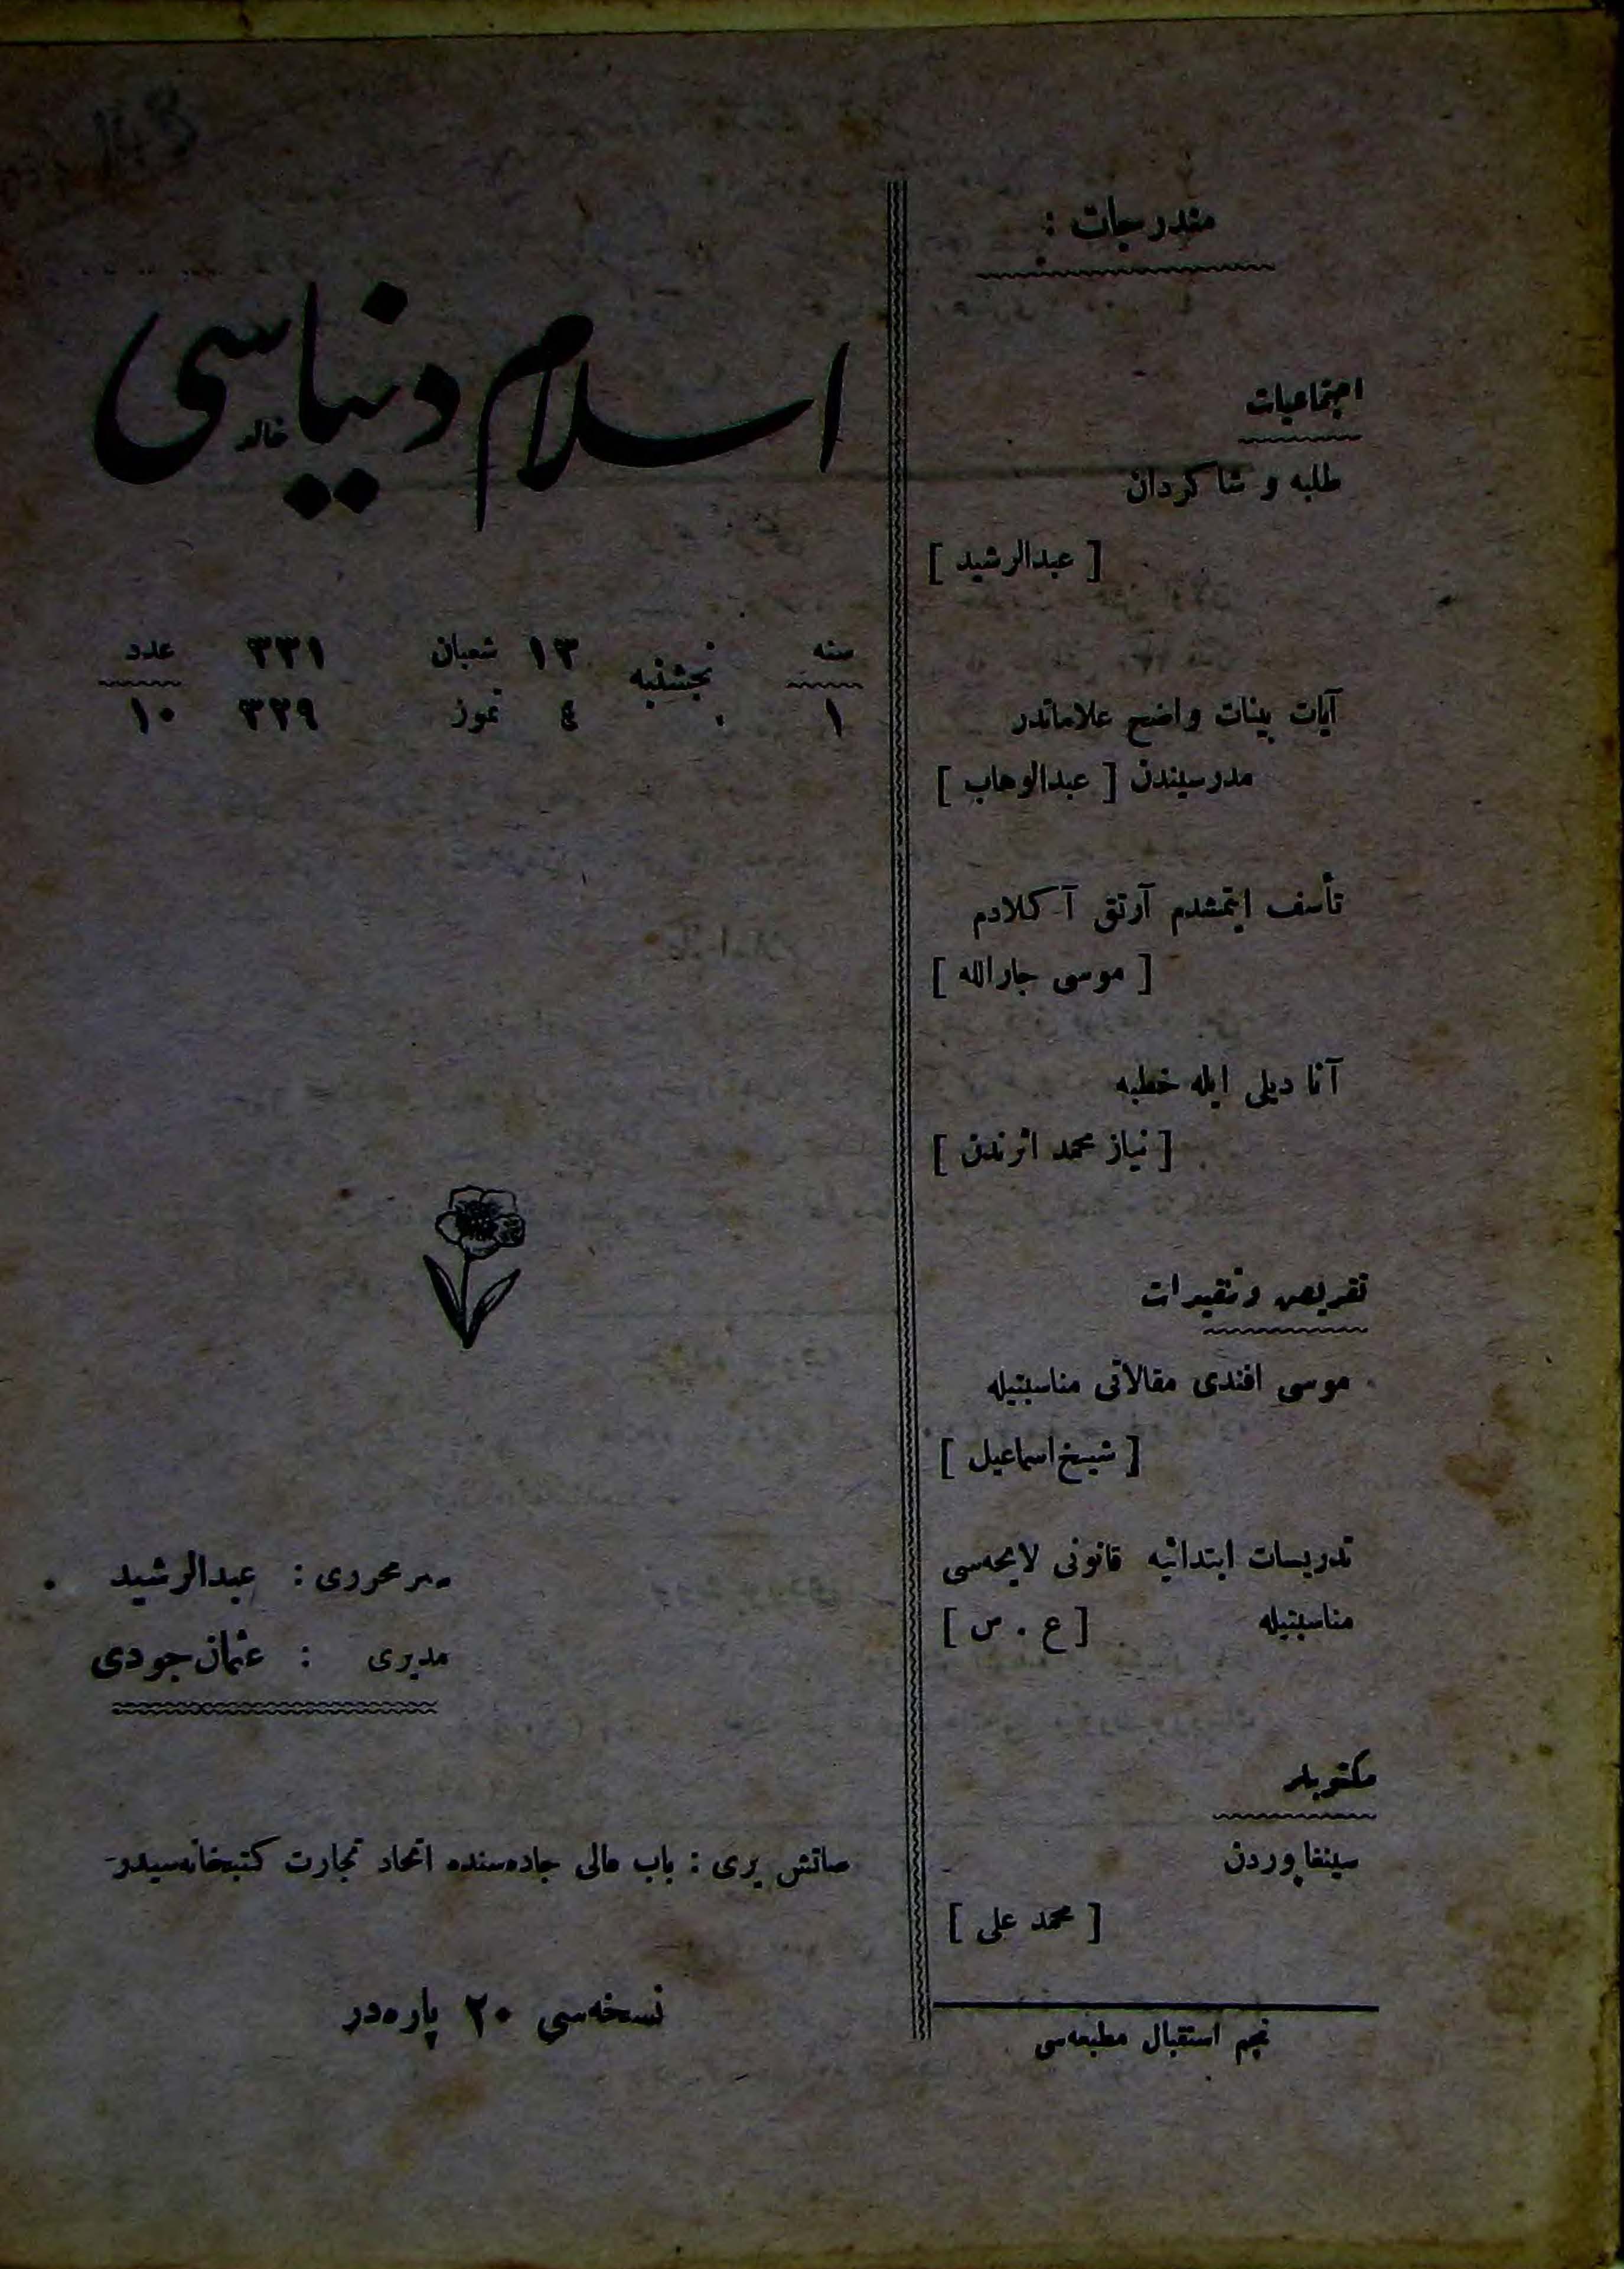 مندرجات :
اجتماعیات
طلبه و شاکردان
[ عبدالرشید ]
آیات بینات واضح علاماتدر
مدرسیندن [ عبدالوهاب ]
تأسف ایتمشدم آرتق آ کلادم
[ موسی جارالله ]
آنا دیلی ایله خطبه
[ نیاز محمد اثرندن ]
تقریض و تنقیدات
موسی افندی مقالاتی مناسبتیله
[ شیخ اسماعیل ]
تدریسات ابتدائیه قانونی لایحه‌سی
مناسبتیله [ ع . س ]
مکتوبلر
سینغاپوردن
[ محمد علی ]
نجم استقبال مطبعه‌سی
اسلام دنیاسی
خالد
سنه پنجشنبه ١٣ شعبان ٣٣١ عدد
١ ٤ تموز ٣٢٩ ١٠
سر محرری : عبدالرشید
مدیری : عثمان جودی
صاتش یری : باب عالی جاده‌سنده اتحاد تجارت کتبخانه‌سیدر
نسخه‌سی ٢٠ پاره‌در